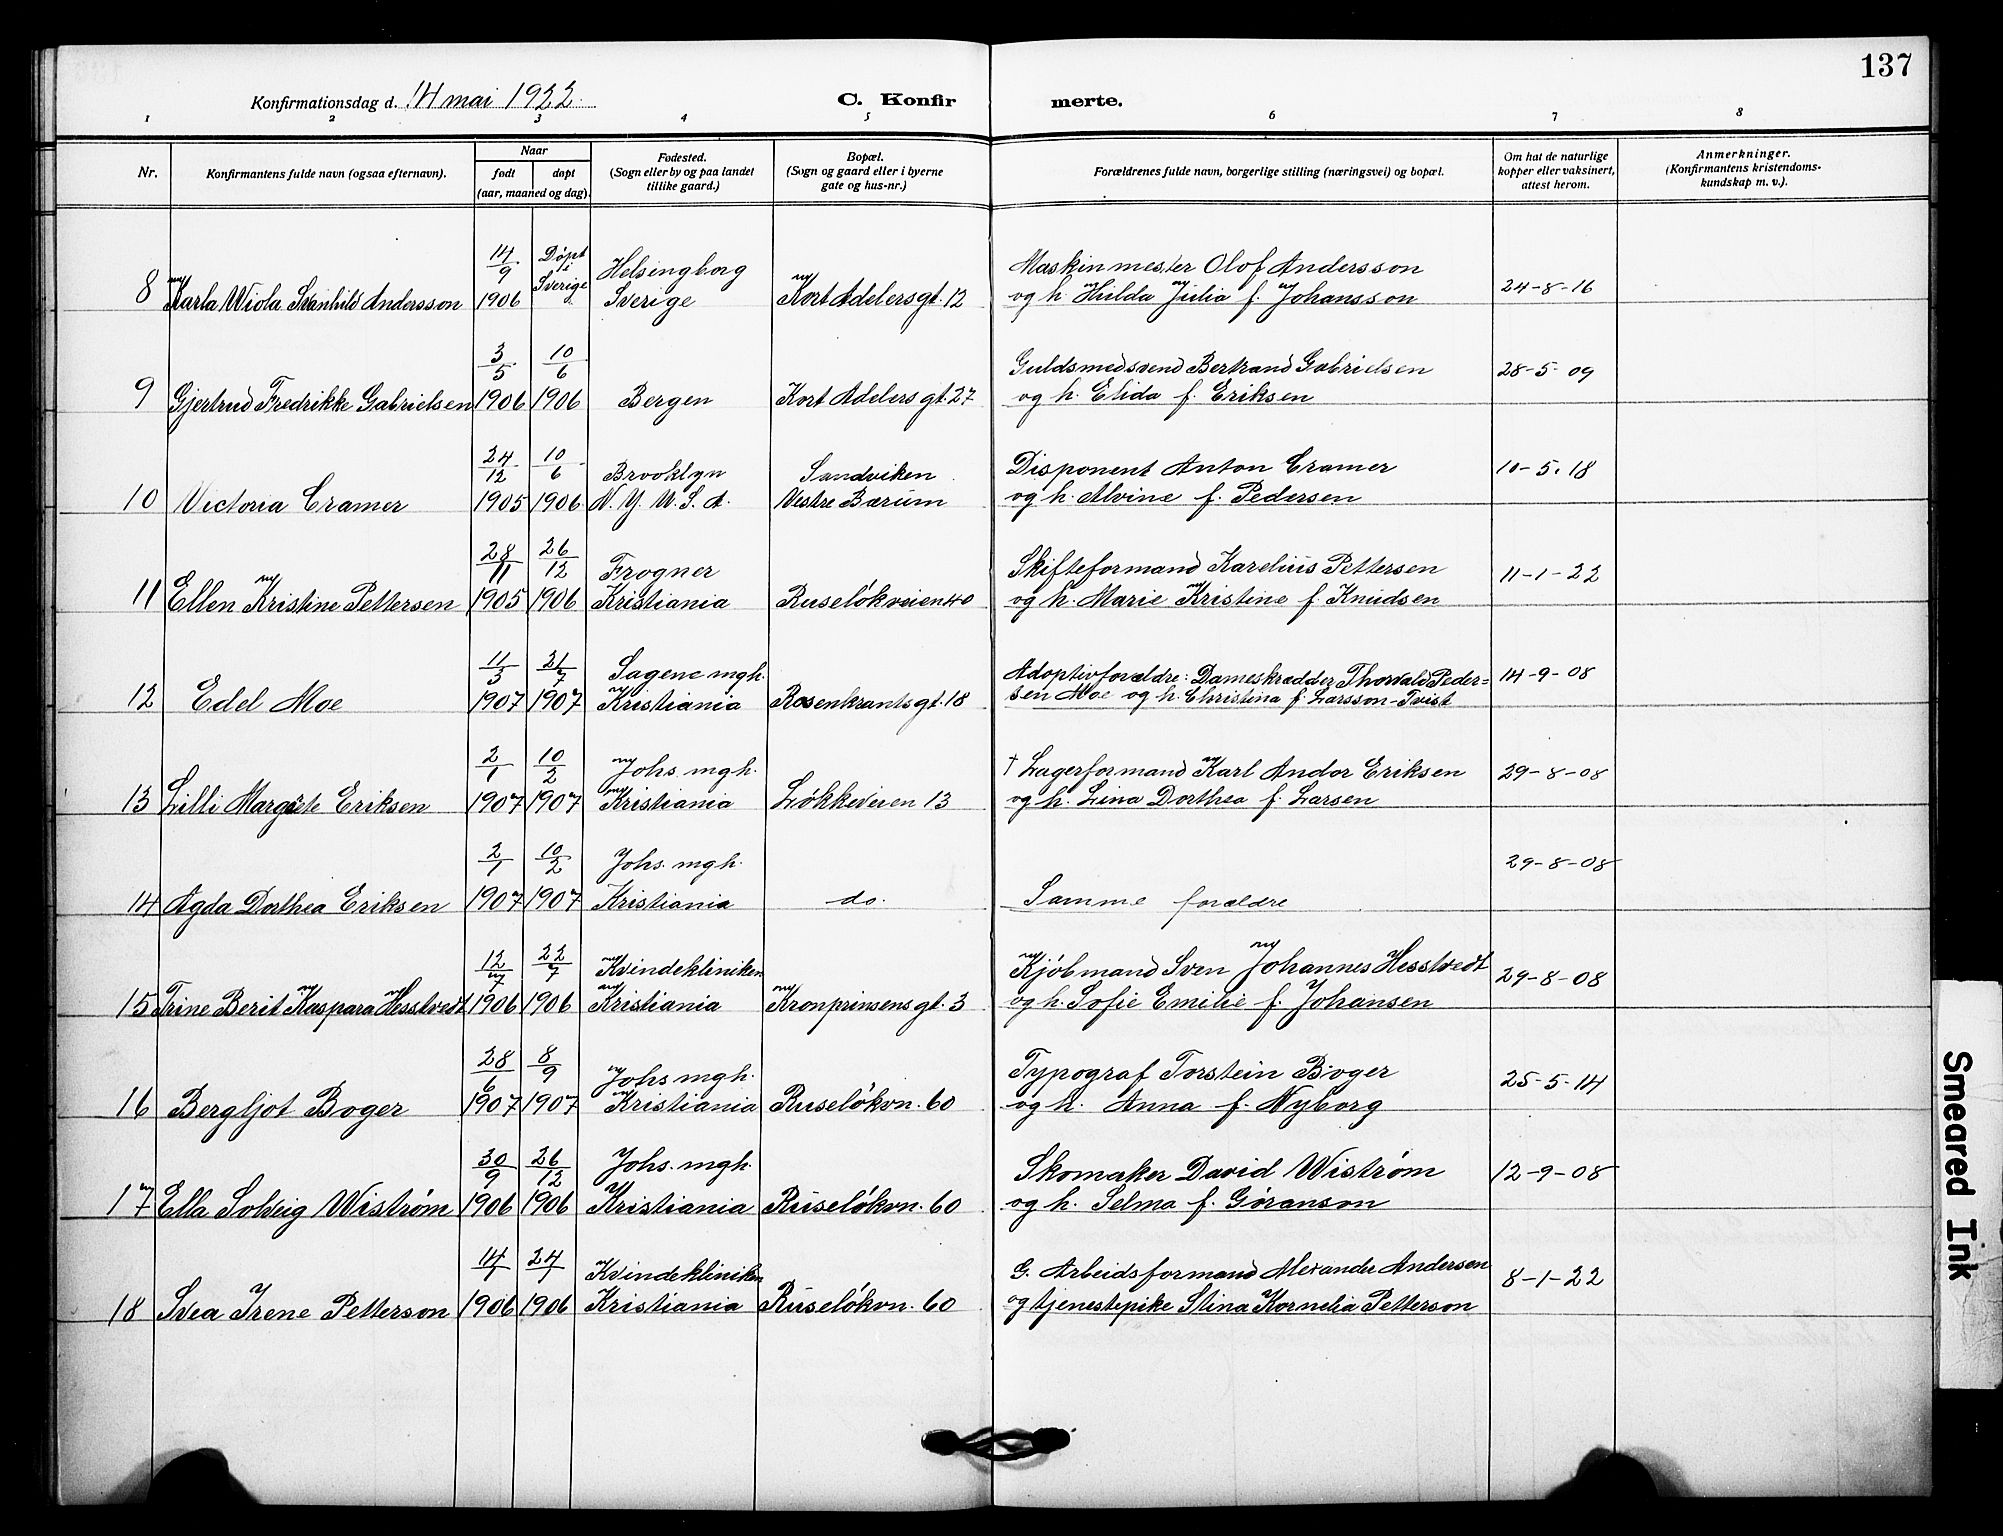 137
Konfirmationsdag d. 14 mai 1922.
C. Konfirmerte.
1 2 3 4 5 6 7 8
Nr.
Konfirmantens fulde navn (ogsaa efternavn).
Naar
født
døpt
(aar, maaned og dag).
Fødested.
(Sogn eller by og paa landet
tillike gaard.)
Bopæl.
(Sogn og gaard eller i byerne
gate og hus-nr.)
Forældrenes fulde navn, borgerlige stilling (næringsvei) og bopæl.
Om hat de naturlige
kopper eller vaksinert,
attest herom.
Anmerkninger.
(Konfirmantens kristendoms-
kundskap m. v.).
8 Karla Wiola Svanhild Andersson
14/9
1906
Døpt
i
Sverige
Helsingborg
Sverige
Kort Adelersgt. 12
Maskinmester Olof Andersson
og h. Hilda Julia f. Johansson
24-8-16
9 Gjertrud Fredrikke Gabrielsen
3/5
1906
10/6
1906
Bergen
Kort Adelersgt. 27
Guldsmedsvend Bertrand Gabrielsen
og h. Elida f. Eriksen
28-5-09
10 Victoria Cramer
24/12
1905
10/6
1906
Brooklyn
N. Y. U. S. A.
Sandviken
Vestre Bærum
Disponent Anton Cramer
og h. Alvine f. Pedersen
10-5-18
11 Ellen Kristine Pettersen
28/11
1905
26/12
1906
Frogner
Kristiania
Ruseløkveien 40
Skifteformand Karelius Pettersen
og h. Marie Kristine f. Knudsen
11-1-22
12 Edel Moe
11/3
1907
21/7
1907
Sagene mgh.
Kristiania
Rosenkrantsgt. 18
Adoptivforældre: Dameskrædder Thorvald Peder=
sen Moe og h. Christina f. Larsson-Tvist
14-9-08
13 Lilli Margrete Eriksen
2/1
1907
10/2
1907
Johs. mgh.
Kristiania
Løkkeveien 13
† Lagerformand Karl Andor Eriksen
og h. Lina Dorthea f. Larsen
29-8-08
14 Agda Dorthea Eriksen
2/1
1907
10/2
1907
Johs. mgh.
Kristiania
do.
Samme forældre
29-8-08
15 Trine Berit Kaspara Hesstvedt
12/7
1906
22/7
1906
Kvindekliniken
Kristiania
Kronprinsensgt. 3
Kjøbmand Sven Johannes Hesstvedt
og h. Sofie Emilie f. Johansen
29-8-08
16 Bergljot Boger
28/6
1907
8/9
1907
Johs mgh.
Kristiania
Ruseløkvn. 60
Typograf Torstein Boger
og h. Anna f. Nyborg
25-5-14
17 Ella Solveig Wistrøm
30/9
1906
26/12
1906
Johs. mgh.
Kristiania
Ruseløkvn. 60
Skomaker David Wistrøm
og h. Selma f. Gøranson
12-9-08
18 Svea Irene Petterson
1906
1906
Kvindekliniken
Kristiania
Ruseløkvn. 60
G. Arbeidsformand Alexander Andersen
og tjenestepike Stina Kornelia Petterson
8-1-22
Smeared Ink